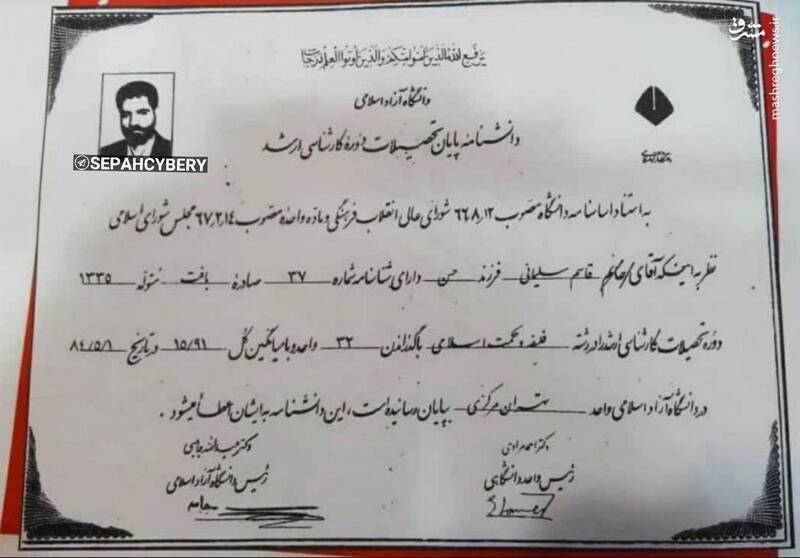 یرفع الله الذین آمنوا منکم والذین اوتوا العلم درجات
دانشگاه آزاد اسلامی
دانشنامه پایان تحصیلات دوره کارشناسی ارشد
به استناد اساسنامه دانشگاه مصوب ۶۶٫۸٫۱۲ شورای عالی انقلاب فرهنگی و ماده واحده مصوب ۶۷٫۲٫۱۴ مجلس شورای اسلامی
نظر به اینکه آقای/خانم قاسم سلیمانی فرزند حسن دارای شناسنامه شماره ۳۷ صادره بافت متولد ۱۳۳۵
دوره تحصیلات کارشناسی ارشد را در رشته فلسفه و حکمت اسلامی با گذراندن ۳۲ واحد و با میانگین کل ۱۵/۹۱ و در تاریخ ۸۴/۵/۱
در دانشگاه آزاد اسلامی واحد تهران مرکزی بپایان رسانیده است، این دانشنامه به ایشان اعطا میشود.
دکتر احمد مرادی
رئیس واحد دانشگاهی
دکتر عبدالله جاسبی
رئیس دانشگاه آزاد اسلامی
@SEPAHCYBERY
مشرق
mashreghnews.ir